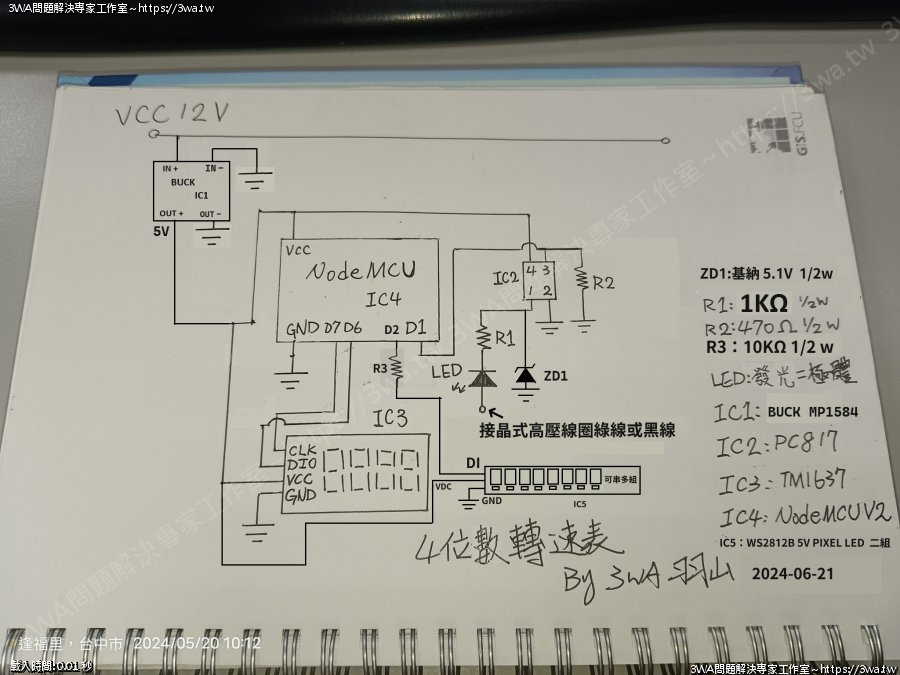 3WA問題解決專家工作室~https://3wa.tw
VCC 12V
GIS.FCU
IN + IN -
BUCK
IC1
OUT + OUT -
5V
VCC
NodeMCU
IC4
GND D7 D6 D2 D1
R3
IC2
4 3
1 2
R2
R1
LED
ZD1
接晶式高壓線圈綠線或黑線
ZD1:基納 5.1V 1/2w
R1: 1KΩ 1/2W
R2:470Ω 1/2W
R3:10KΩ 1/2 w
LED:發光二極體
IC1: BUCK MP1584
IC2:PC817
IC3:TM1637
IC4:NodeMCU V2
IC5:WS2812B 5V PIXEL LED 二組
IC3
CLK
DIO
VCC
GND
DI
VDC
GND
可串多組
IC5
4位數轉速表
By 3WA 羽山
2024-06-21
逢福里,台中市 2024/05/20 10:12
載入時間: 0.01 秒
3WA問題解決專家工作室~https://3wa.tw
3WA問題解決專家工作室~https://3wa.tw